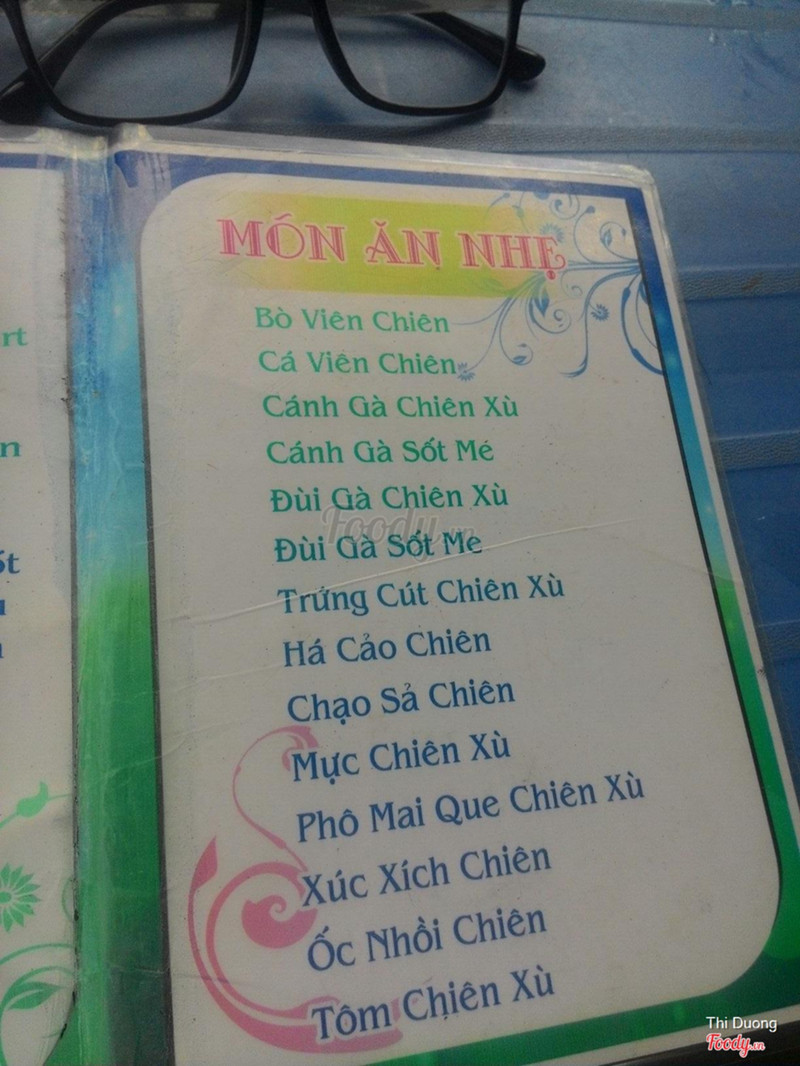 MÓN ĂN NHẸ
Bò Viên Chiên
Cá Viên Chiên
Cánh Gà Chiên Xù
Cánh Gà Sốt Mé
Đùi Gà Chiên Xù
Đùi Gà Sốt Me
Trứng Cút Chiên Xù
Há Cảo Chiên
Chạo Sả Chiên
Mực Chiên Xù
Phô Mai Que Chiên Xù
Xúc Xích Chiên
Ốc Nhồi Chiên
Tôm Chiên Xù
Foody.vn
Thi Duong
Foody.vn